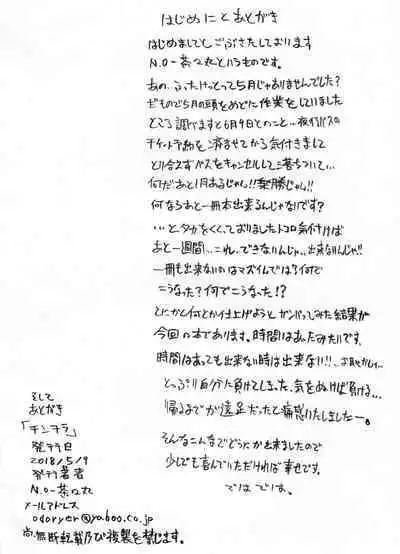 はじめにとあとがき
はじめましてとごぶさたしております
N.O-茶々丸というものです。
あの、ふたけっとって5月じゃありませんでした?
だもので5月の頭をめどに作業をしていました
ところ調べますと6月9日とのこと…夜行バスの
チケット予約を済ませてから気付きまして
とりあえずバスをキャンセルして落ちついて…
何だあと1月あるじゃん!!楽勝じゃん!!
何ならあと一冊本出来るんじゃないです?
…と、タカをくくっておりましたトコロ気付けば
あと一週間…これ、できないんじゃ…出来ないんじゃ!!
一冊も出来ないのはマズイんでは?何で
こうなった?何でこうなった!?
とにかく何とか仕上げようとガンバってみた結果が
今回の本であります。時間はあったみたいです。
時間はあっても出来ない時は出来ない!!
とっぷり自分に負けてしまった、気をぬけば負ける…
帰るまでが遠足だったと痛感いたしましたー。
そんなこんなでどうにか出来ましたので
少しでも喜んでいただければ幸せです。
ではでは。
そして
あとがき
「チンチラ」
発刊日
2018/5/9
発刊著者
N.O-茶々丸
メールアドレス
odoryer@yaboo.co.jp
尚、無断転載及び複製を禁じます。